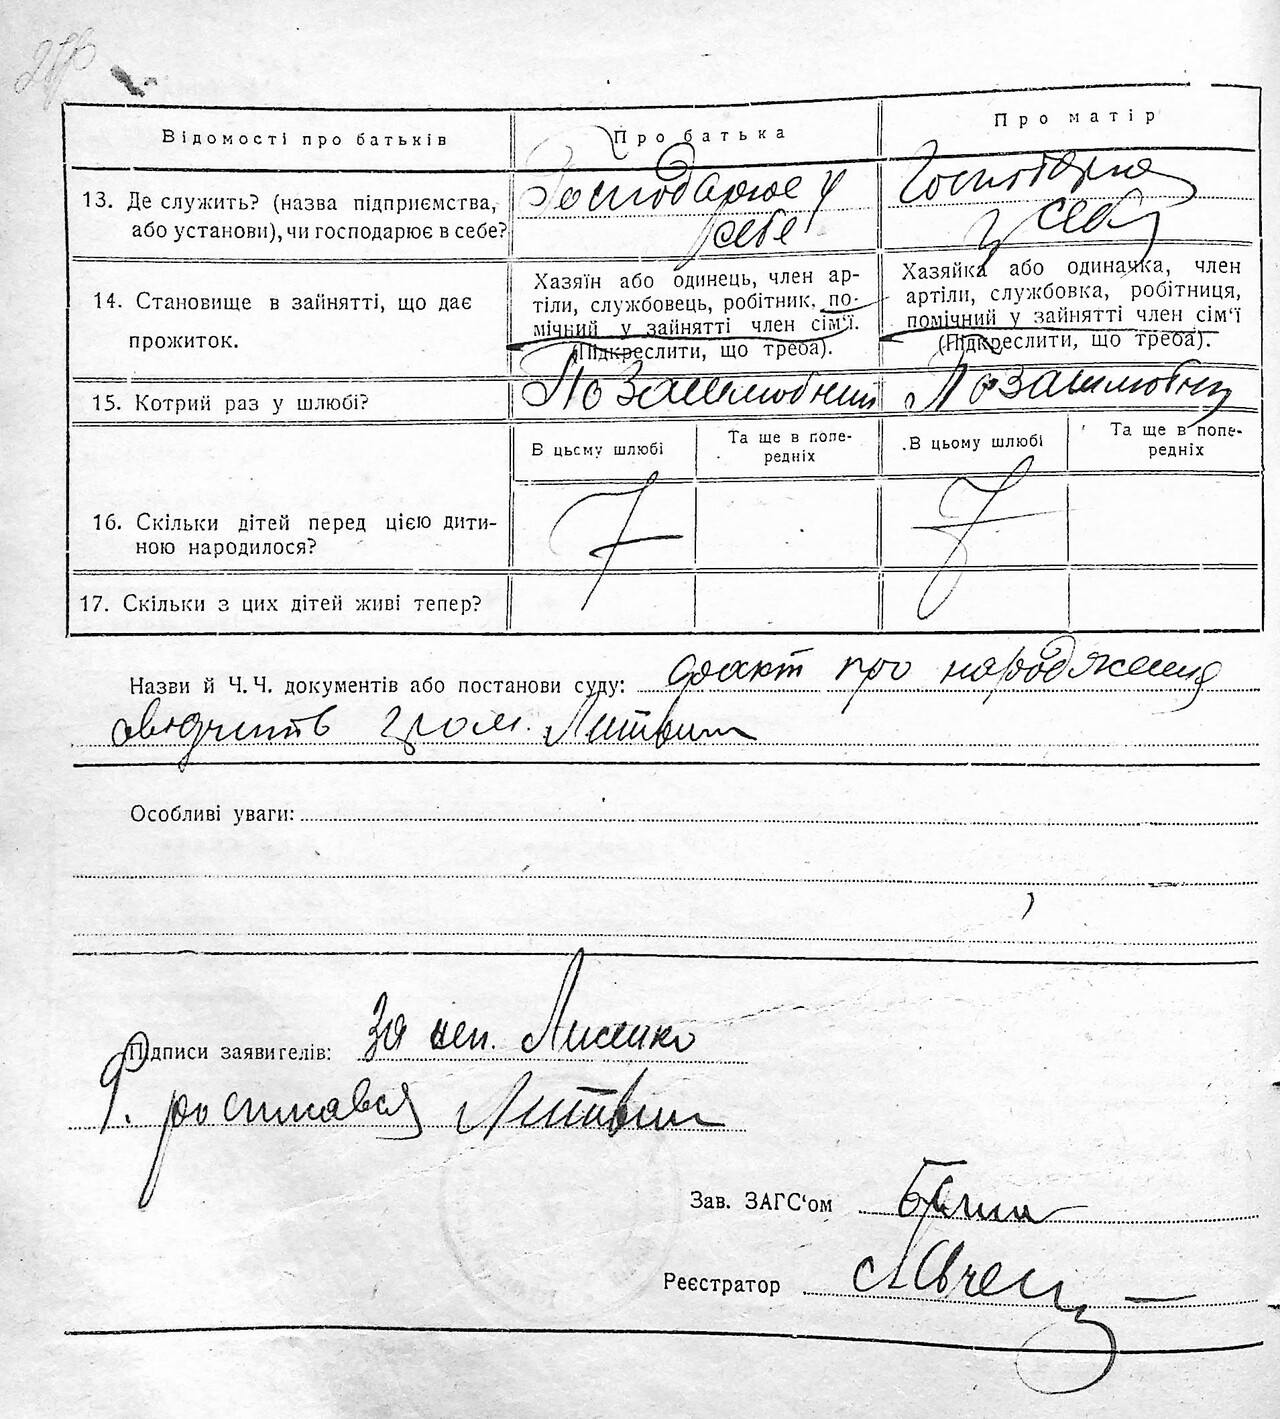 Відомості про батьків
Про батька
Про матір
13. Де служить? (назва підприємства,
або установи), чи господарює в себе?
Господарює у
себе
Господарює
у себе
14. Становище в зайнятті, що дає
прожиток.
Хазяїн або одинець, член ар-
тіли, службовець, робітник, по-
мічний у зайнятті член сім‘ї.
(Підкреслити, що треба).
Хазяйка або одиначка, член
артіли, службовка, робітниця,
помічний у зайнятті член сім‘ї
(Підкреслити, що треба).
15. Котрий раз у шлюбі?
Позашлюбний
Позашлюбний
В цьому шлюбі
Та ще в попе-
редніх
В цьому шлюбі
Та ще в попе-
редніх
16. Скільки дітей перед цією дити-
ною народилося?
17. Скільки з цих дітей живі тепер?
Назви й Ч. Ч. документів або постанови суду: факт про народження
свідчить гром. Литвин
Особливі уваги:
Підписи заявителів: За неп. Лисенко
росписався Литвин
Зав. ЗАГС‘ом
Реєстратор